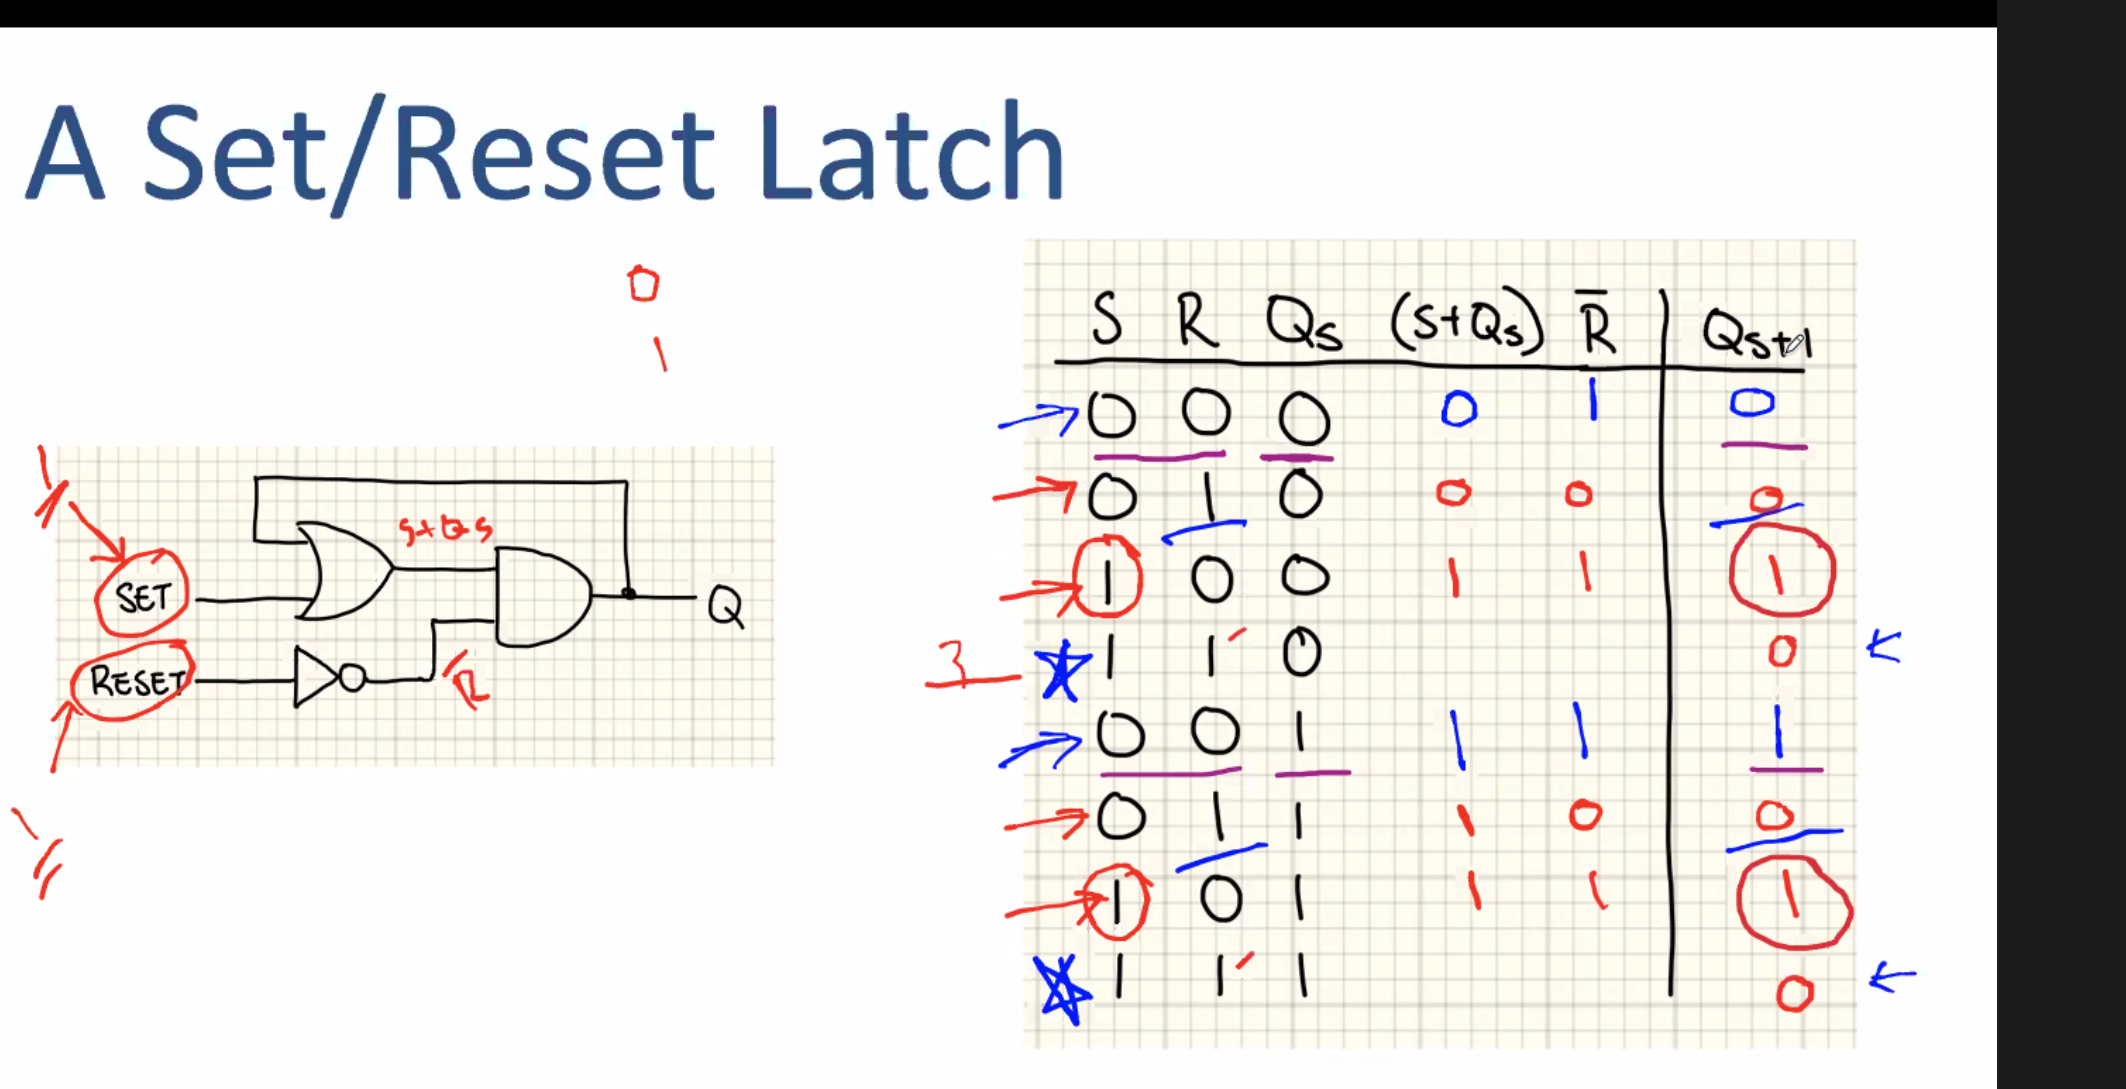 A Set/Reset Latch
0
1
S+QS
SET
RESET
Q
R
3
S R Qs (S+Qs) R̅ Qs+1
0 0 0 0 1 0
0 1 0 0 0 0
1 0 0 1 1 1
1 1 0 0
0 0 1 1 1 1
0 1 1 1 0 0
1 0 1 1 1 1
1 1 1 0